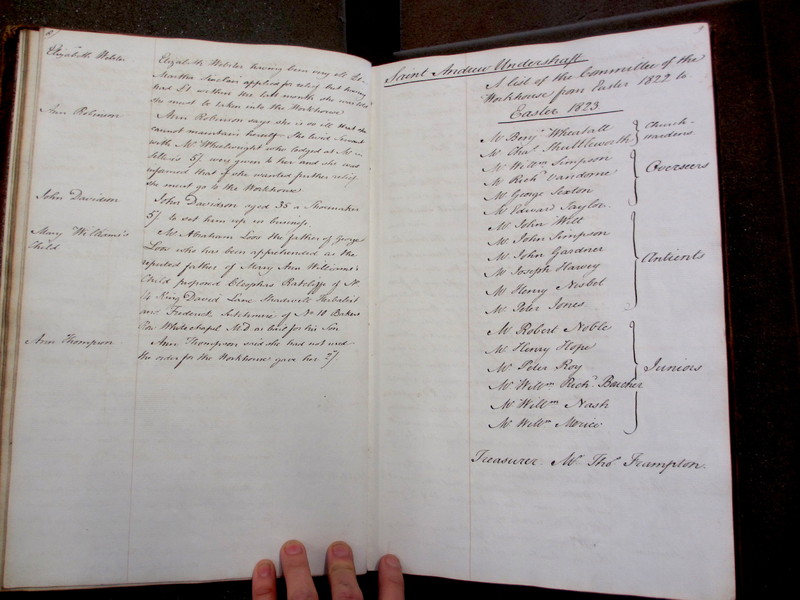 Elizth Webster
Elizabeth Webster having been very ill &
Martha Sinclair applied for relief but having
had £1 within the last month she was told
she must be taken into the Workhouse
Ann Robinson
Ann Robinson says she is so ill that she
cannot maintain herself. She lived Servant
with Mr Wheelwright who lodged at Mr
5/. were given to her and she was
informed that if she wanted further relief
she must go to the Workhouse
John Davidson
John Davidson aged 35 a Shoemaker
5/. to set him up in business
Mary Williams's
Child
Mr Abraham Loso the father of George
Loso who has been apprehended as the
reputed father of Mary Ann Williams's
Child proposed Cleophas Ratcliffe of No
16 King David Lane Shadwell Herbalist
and Frederick of No 10 Bakers
Row Whitechapel M.D. as bail for his Son
Ann Thompson
Ann Thompson said she had not used
the order for the Workhouse gave her 2/.
9
Saint Andrew Undershaft
A list of the Committee of the
Workhouse from Easter 1822 to
Easter 1823
Mr Benjn Wheatall
Mr Chas Shuttleworth
Church-
wardens
Mr Willm Simpson
Mr Richd Vandome
Mr George Sexton
Mr Edward Taylor
Overseers
Mr John Wilt
Mr John Simpson
Mr John Gardner
Mr Joseph Harvey
Mr Henry Nisbet
Mr Peter Jones
Antients
Mr Robert Noble
Mr Henry Hope
Mr Peter Roy
Mr Willm Richd Barcher
Mr Willm Nash
Mr Willm Morice
Juniors
Treasurer Mr Thos Frampton.